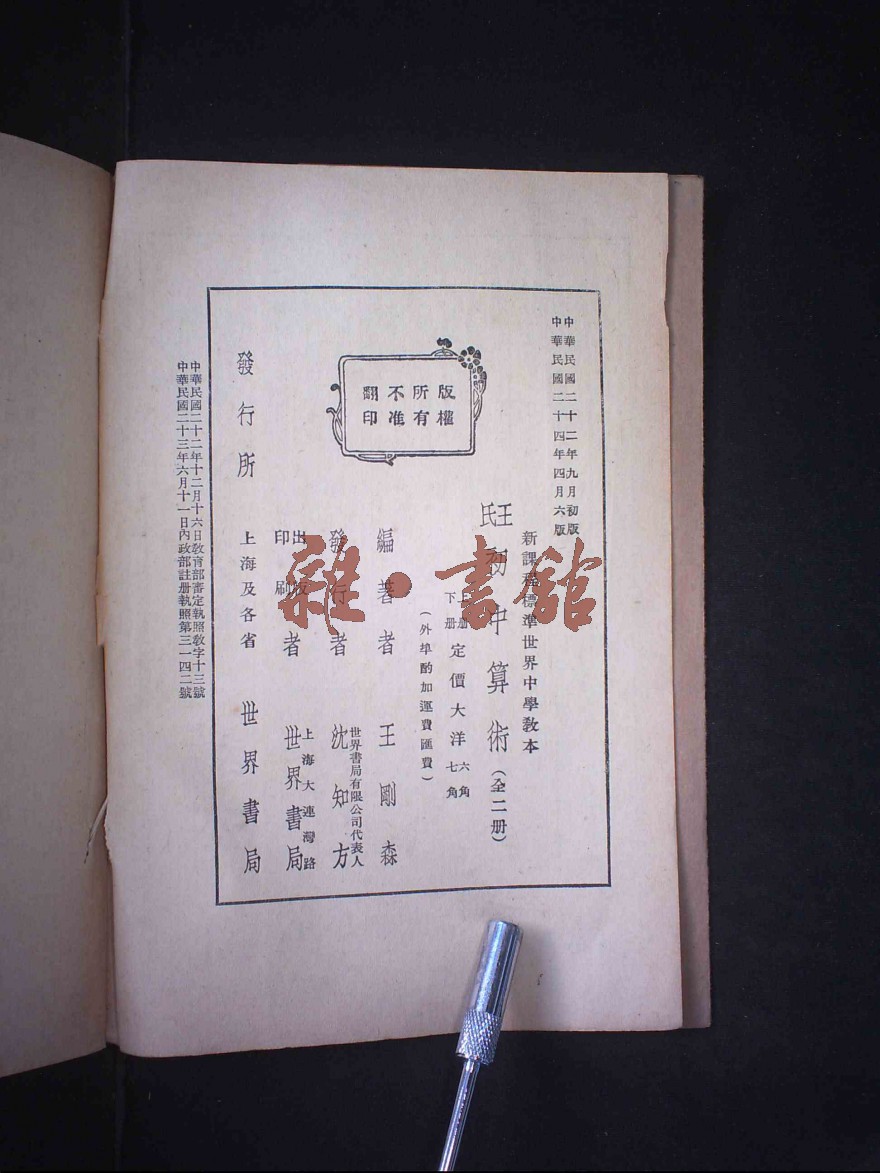 中華民國二十二年九月初版
中華民國二十四年四月六版
新課程標準世界中學教本
王氏初中算術(全二册)
上册 下册 定價大洋 六角 七角
(外埠酌加運費匯費)
版權所有不准翻印
編著者 王剛森
發行者 世界書局有限公司代表人 沈知方
出版印刷者 上海大連灣路 世界書局
發行所 上海及各省 世界書局
中華民國二十二年十二月十六日教育部審定執照教字十三號
中華民國二十三年六月十一日內政部註册執照第三一四二號
雜·書館